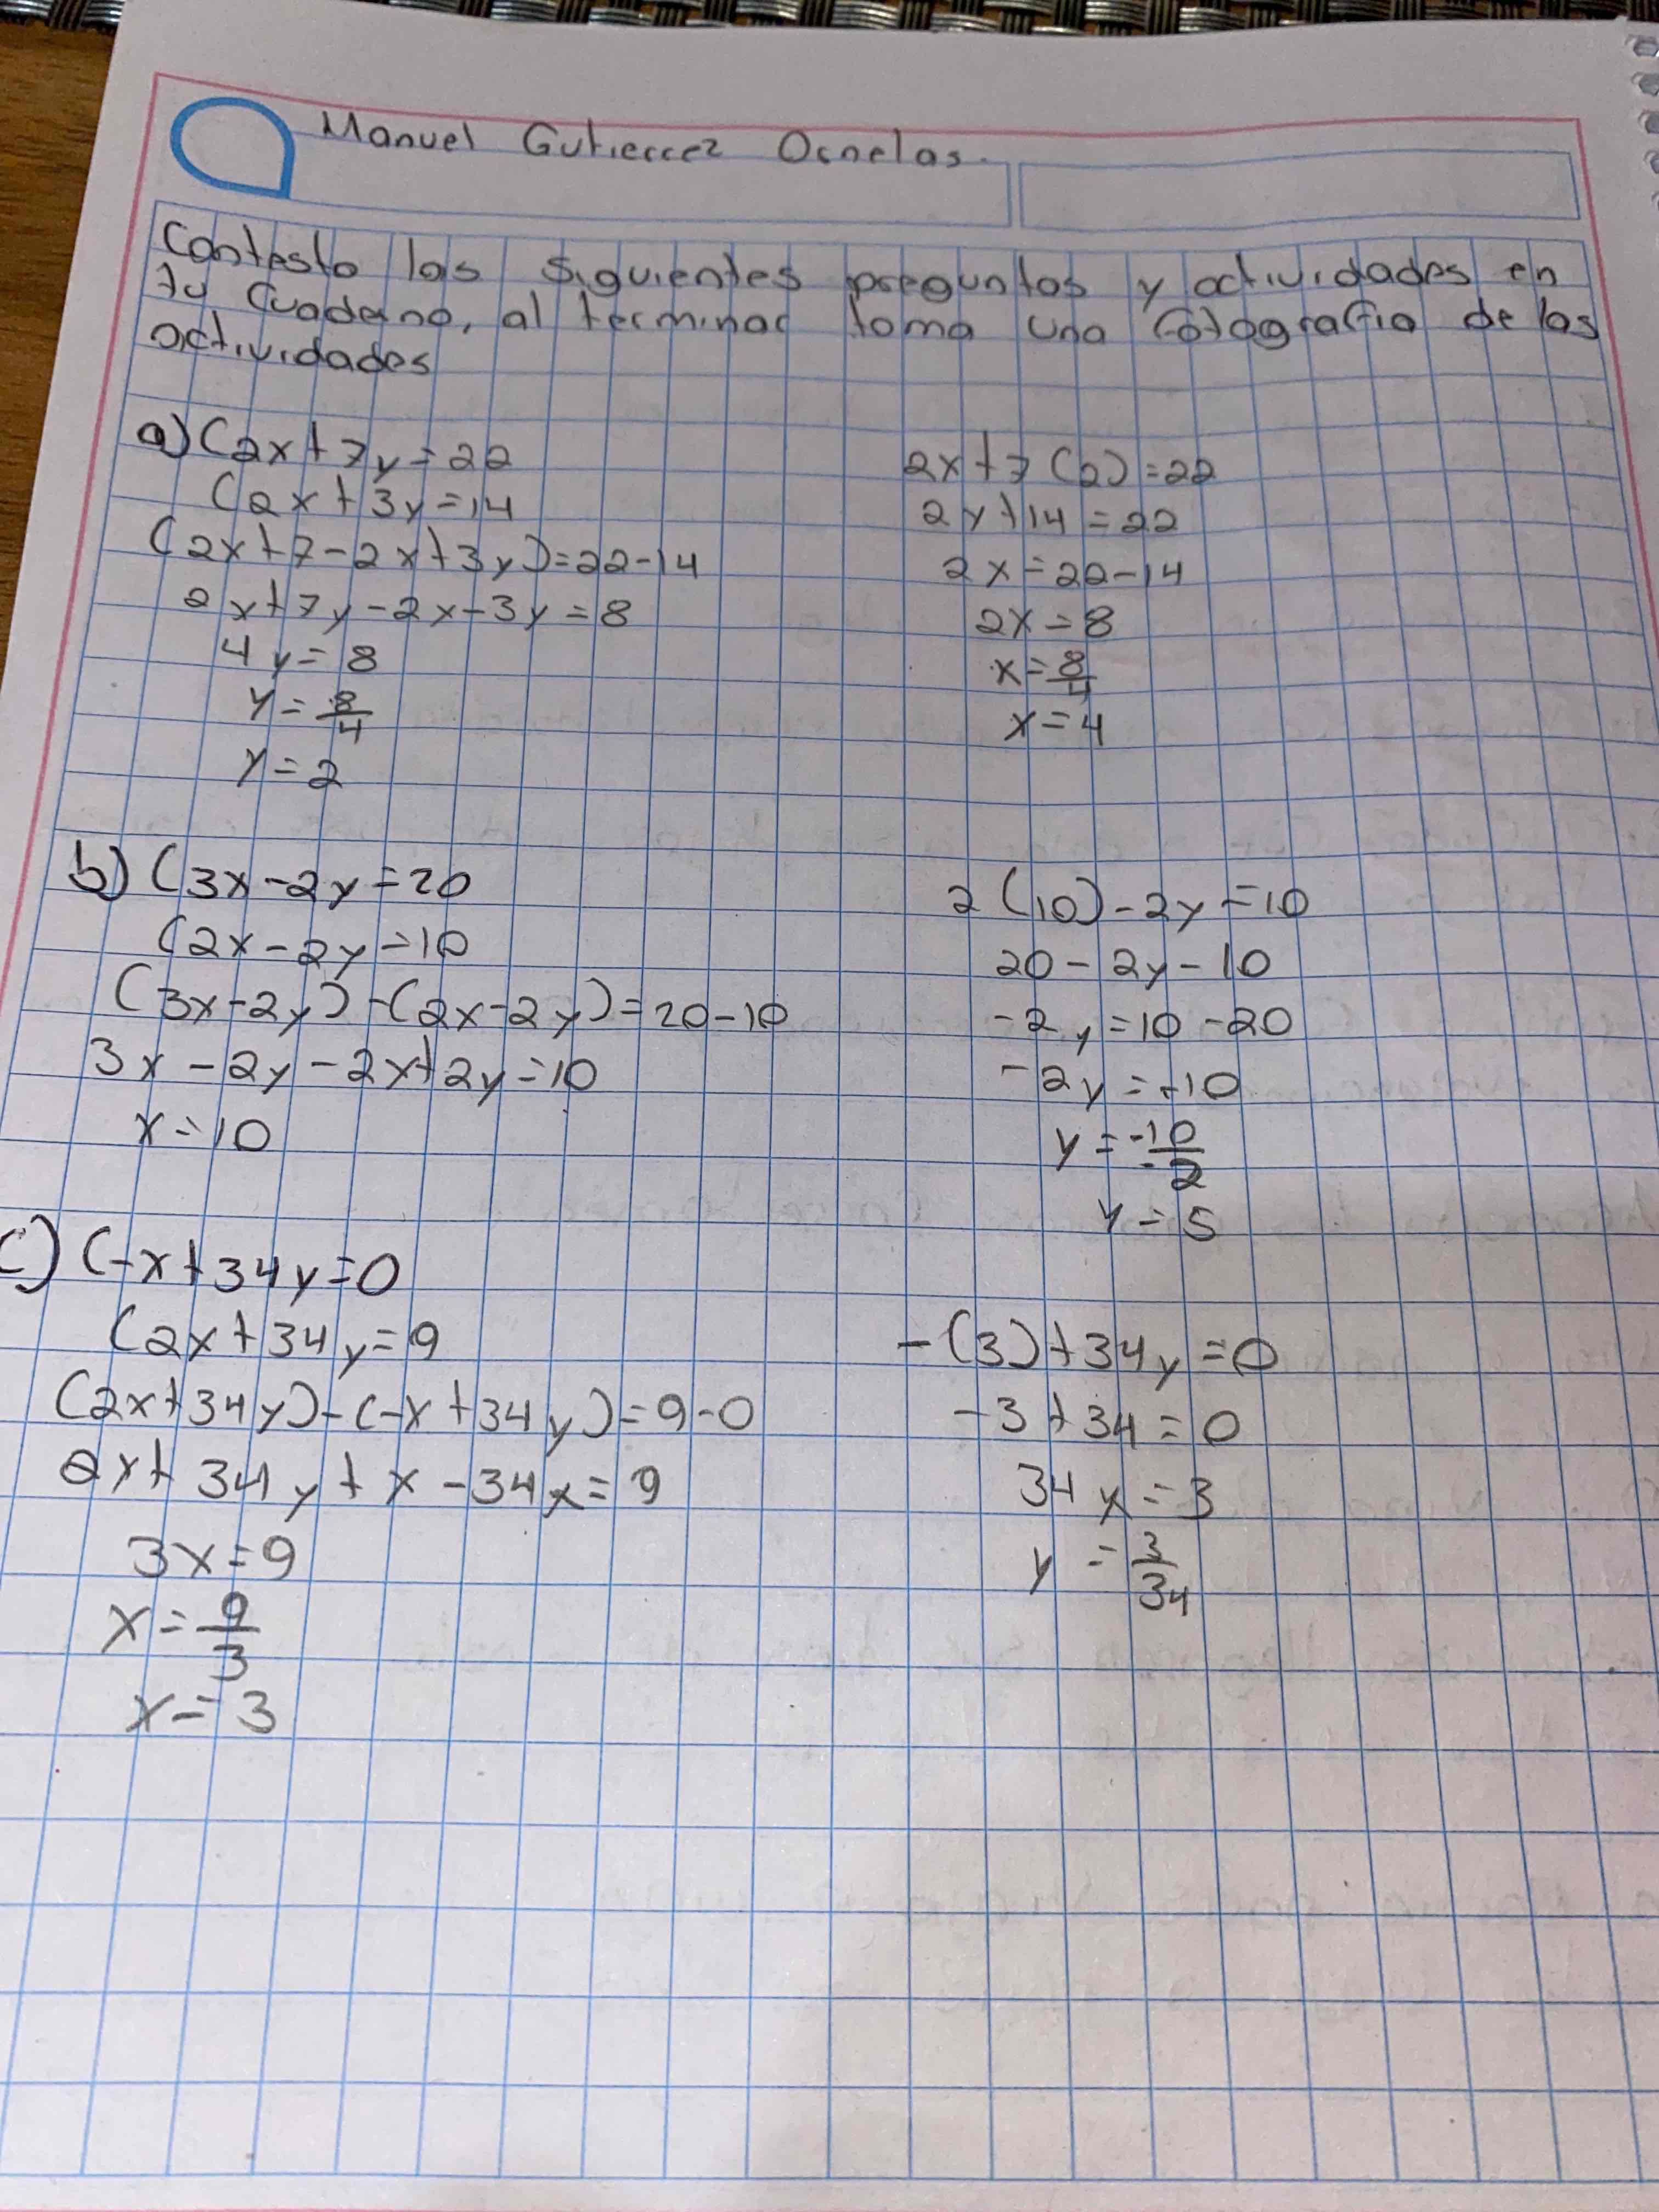 Manuel Gutierrez Ornelas.
Contesta las siguientes preguntas y actividades en
tu cuaderno, al terminar toma una fotografia de las
actividades
a) (2x+7y=22
(2x+3y=14
(2x+7-2x+3y)=22-14
2x+7y-2x-3y=8
4y=8
y=8/4
y=2
2x+7(2)=22
2y+14=22
2x=22-14
2x=8
x=8/4
x=4
b) (3x-2y=20
(2x-2y=10
(3x-2y)-(2x-2y)=20-10
3x-2y-2x+2y=10
x=10
2(10)-2y=10
20-2y-10
-2y=10-20
-2y=-10
y=-10/-2
y=5
c) (-x+34y=0
(2x+34y=9
(2x+34y)-(-x+34y)=9-0
2x+34y+x-34x=9
3x=9
x=9/3
x=3
-(3)+34y=0
-3+34=0
34y=3
y=3/34